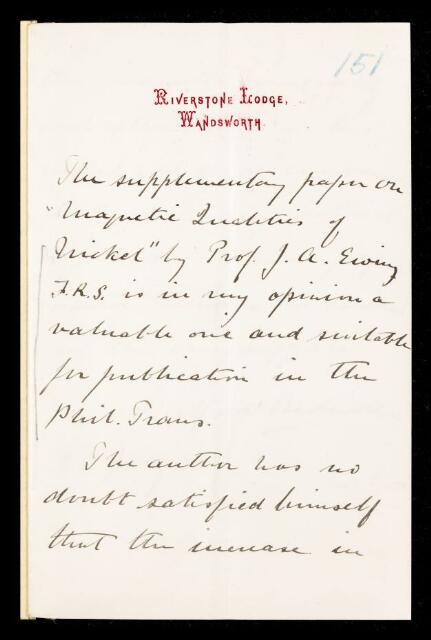 151
Riverstone Lodge,
Wandsworth.
The supplementary paper on
"Magnetic Qualities of
Nickel" by Prof. J. A. Ewing
F.R.S. is in my opinion a
valuable one and suitable
for publication in the
Phil. Trans.
The author has no
doubt satisfied himself
that the increase in